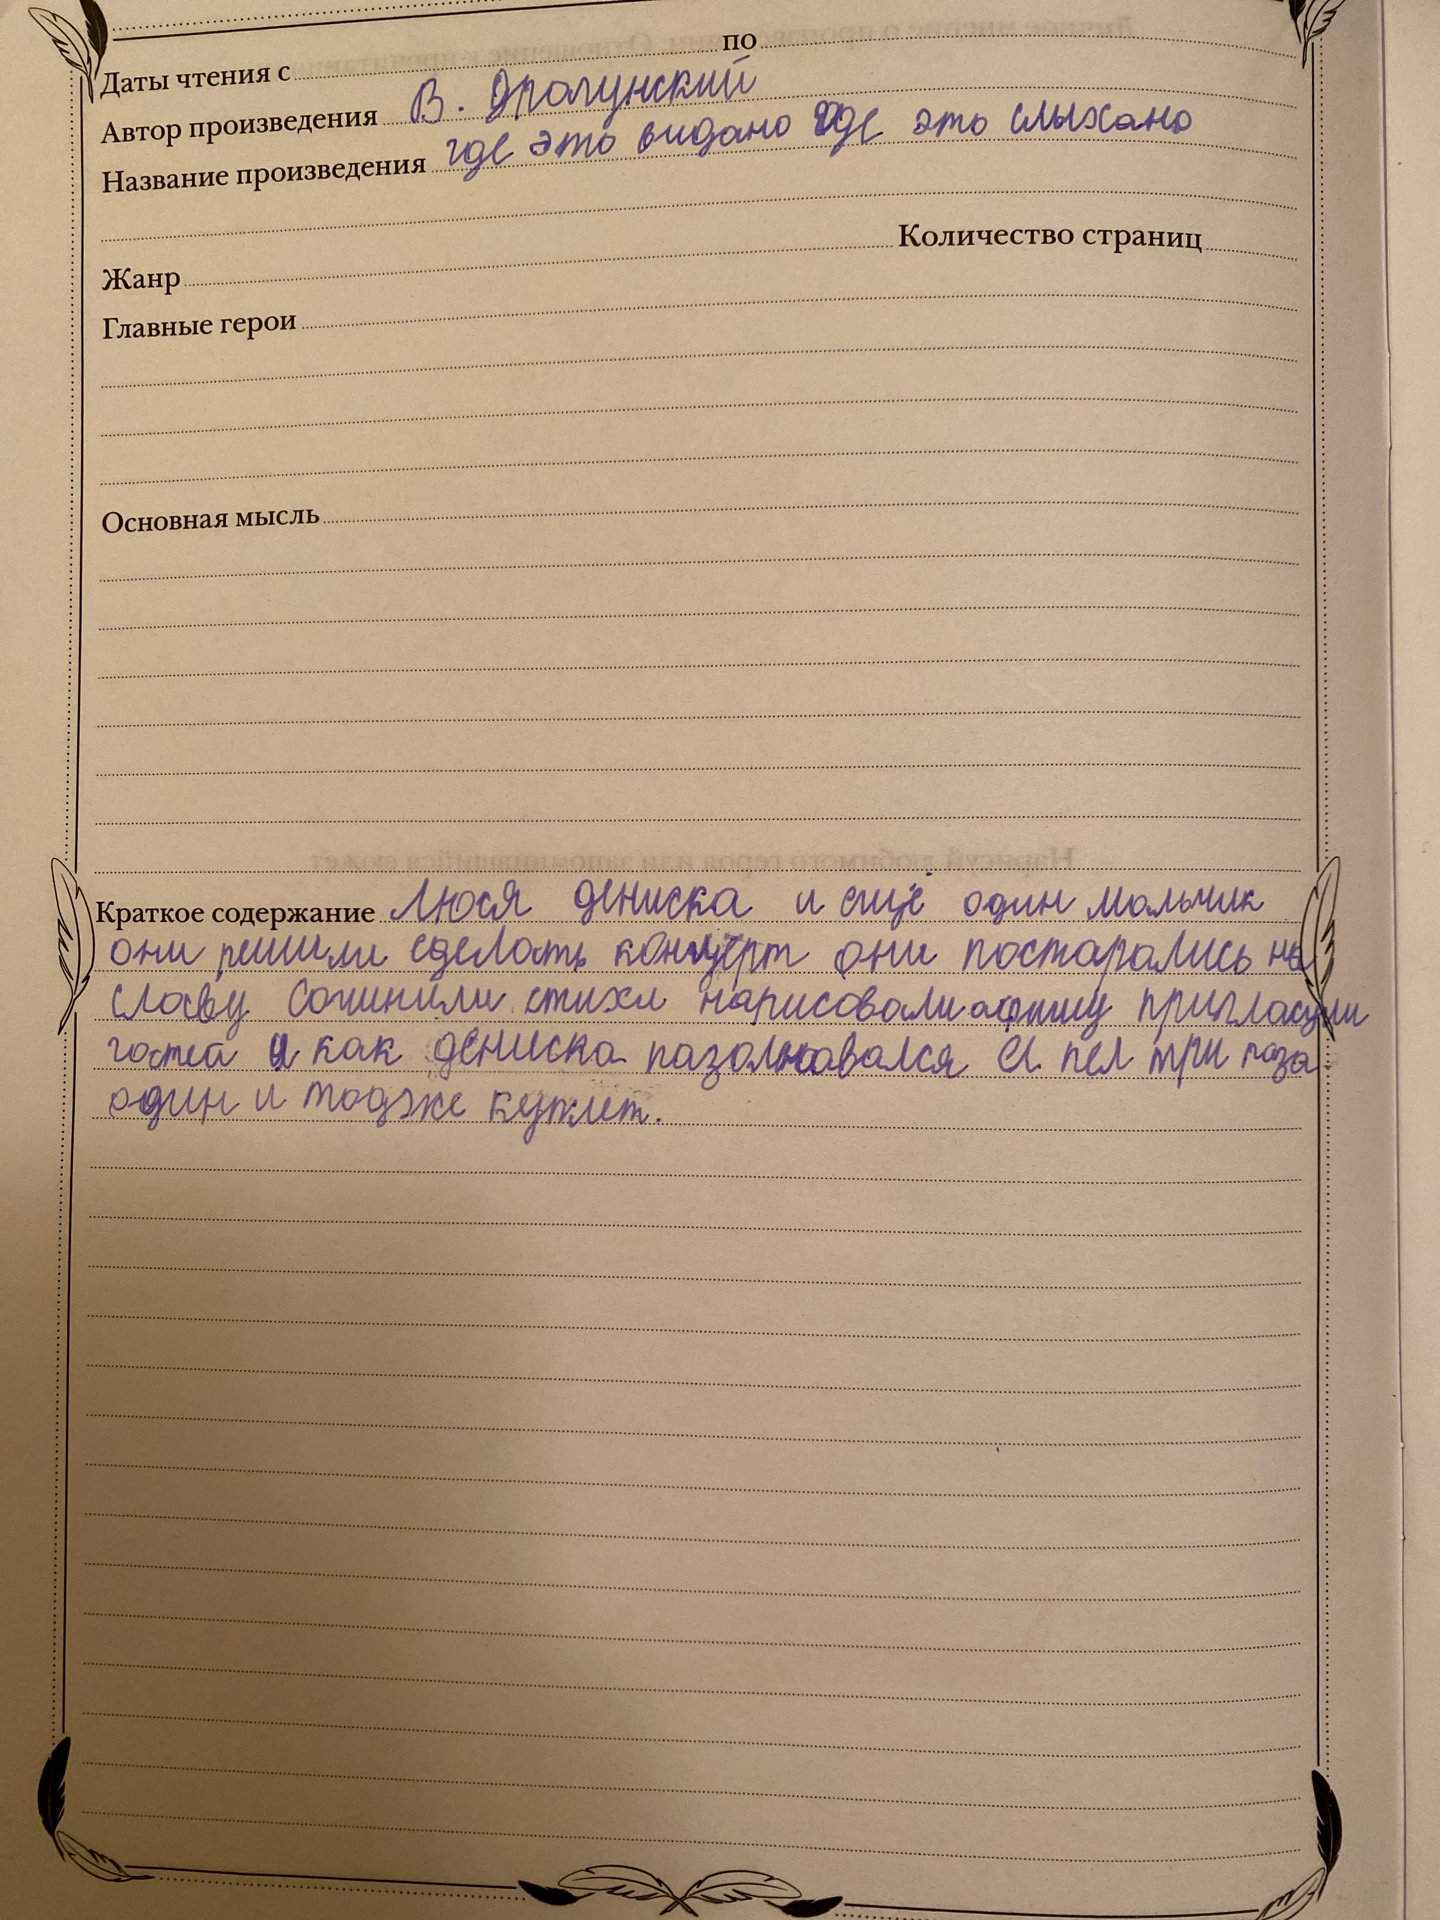 Даты чтения с по
Автор произведения В. Драгунский
Название произведения где это видано где это слыхано
Жанр Количество страниц
Главные герои
Основная мысль
Краткое содержание Люся дениска и ещё один мальчик
они решили сделать концерт они постарались на
славу сочинили стихи нарисовали афишу пригласили
гостей и как дениска разволновался И пел три раза
один и тодже куплет.